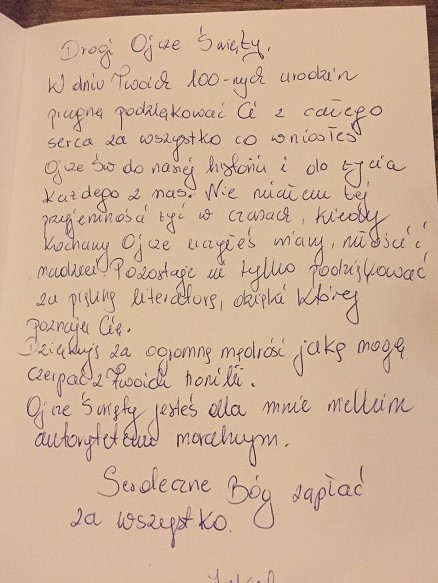 Drogi Ojcze Święty,
W dniu Twoich 100-nych urodzin
pragnę podziękować Ci z całego
serca za wszystko co wniosłeś
Ojcze Św do naszej historii i do życia
każdego z nas. Nie miałem tej
przyjemność żyć w czasach, kiedy
kochany Ojcze uczyłeś wiary, miłości i
nadziei. Pozostaje mi tylko podziękować
za piękną literaturę, dzięki której
poznaję Cię.
Dziękuję za ogromną mądrość jaką mogę
czerpać z Twoich homilii.
Ojcze Święty jesteś dla mnie wielkim
autorytetem moralnym.
Serdeczne Bóg zapłać
za wszystko.